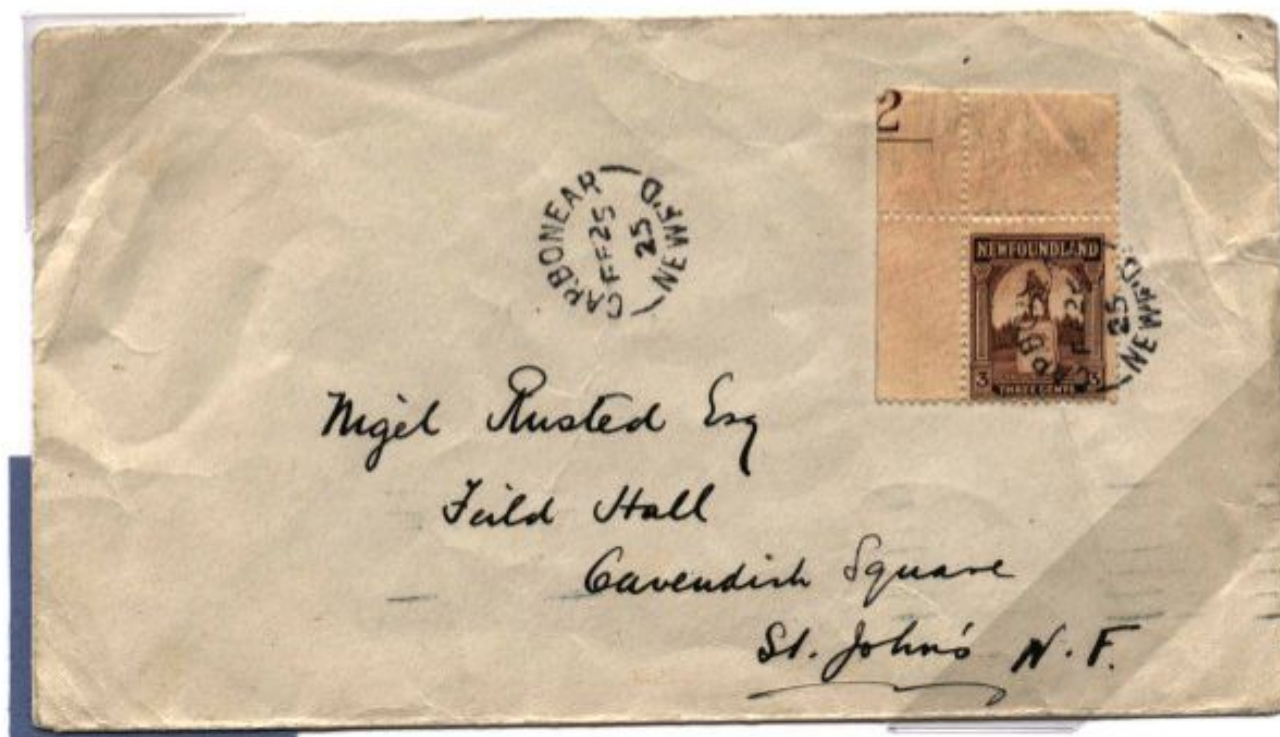 2
CARBONEAR
FE 25
25
NEWF'D
NEWFOUNDLAND
25
NEWF'D
3 3
THREE CENTS
Nigel Rusted Esq
Feild Hall
Cavendish Square
St. John's N.F.